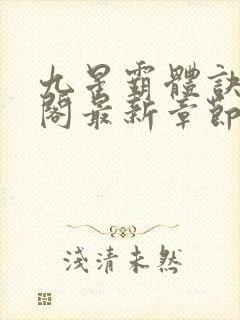 九星霸體訣
閣最新章節
淺清未然